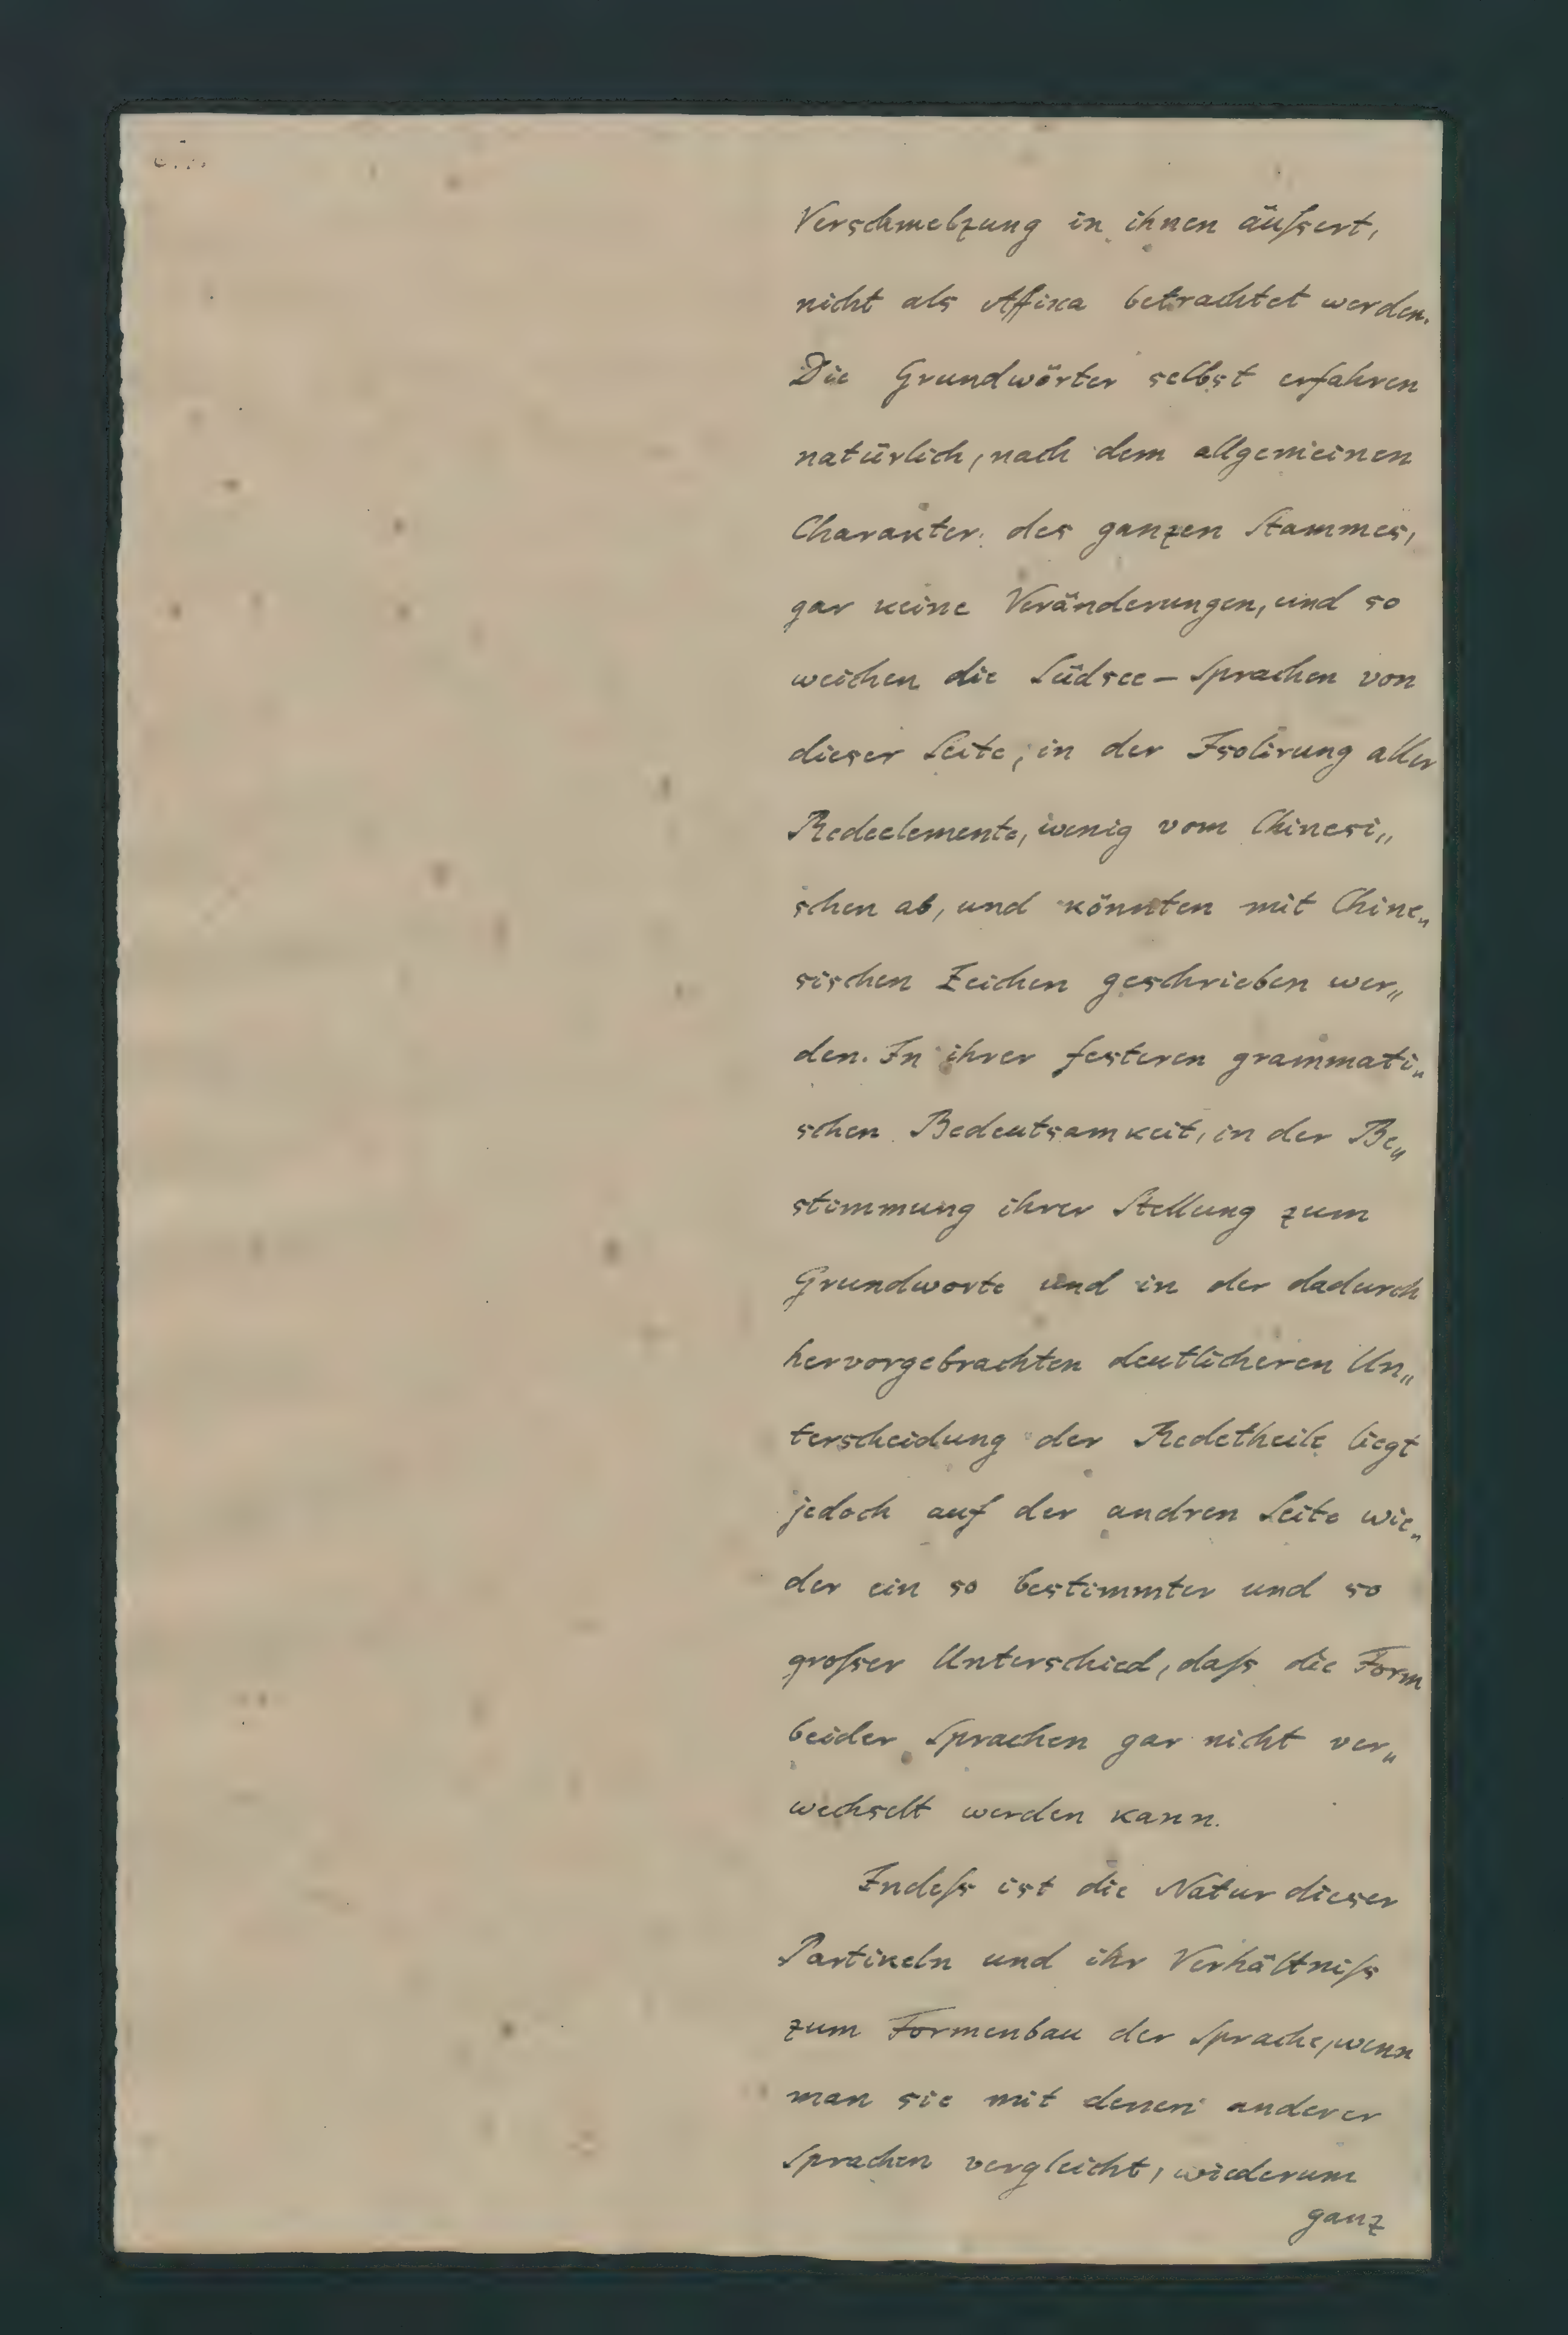 Verschmelzung in ihnen äußert,
nicht als Affixa betrachtet werden.
Die Grundwörter selbst erfahren
natürlich, nach dem allgemeinen
Charakter des ganzen Stammes,
gar keine Veränderungen, und so
weichen die Südsee-Sprachen von
dieser Seite, in der Isolirung aller
Redeelemente, wenig vom Chinesi„
schen ab, und könnten mit Chine„
sischen Zeichen geschrieben wer„
den. In ihrer festeren grammati„
schen Bedeutsamkeit, in der Be„
stimmung ihrer Stellung zum
Grundworte und in der dadurch
hervorgebrachten deutlicheren Un„
terscheidung der Redetheile liegt
jedoch auf der andren Seite wie„
der ein so bestimmter und so
großer Unterschied, daß die Form
beider Sprachen gar nicht ver„
wechselt werden kann.
Indeß ist die Natur dieser
Partikeln und ihr Verhältniß
zum Formenbau der Sprache, wenn
man sie mit denen anderer
Sprachen vergleicht, wiederum
ganz